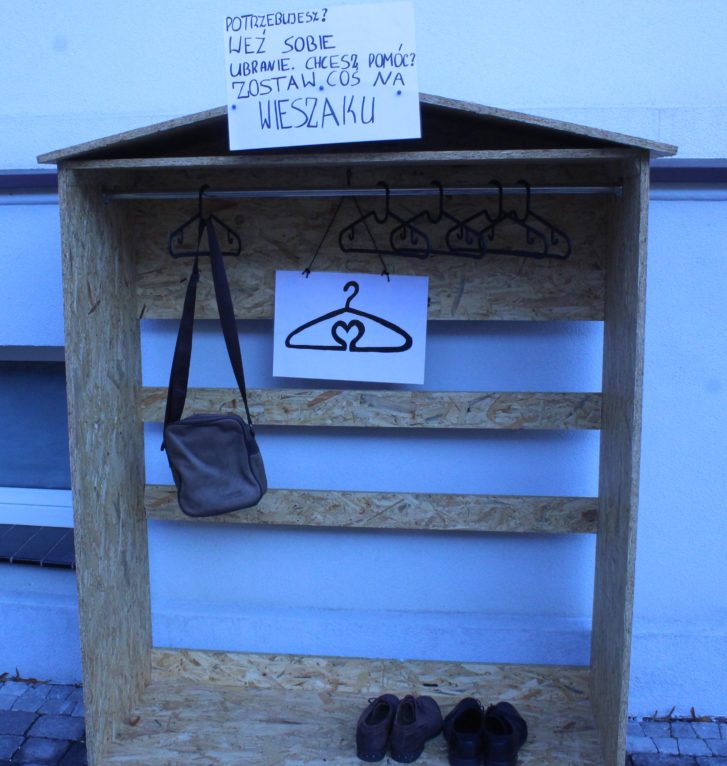 POTRZEBUJESZ?
WEŹ SOBIE
UBRANIE. CHCESZ POMÓC?
ZOSTAW COŚ NA
WIESZAKU